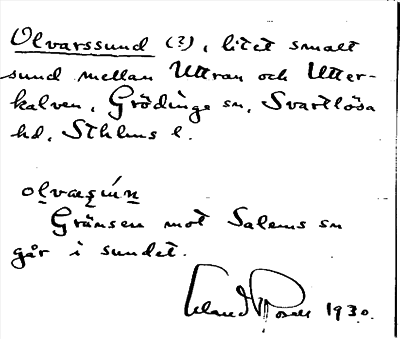 Olvarssund (?), litet smalt
sund mellan Uttran och Utter-
kalven, Grödinge sn, Svartlösa
hd, Sthlms l.
Gränsen mot Salems sn
går i sundet.
1930.